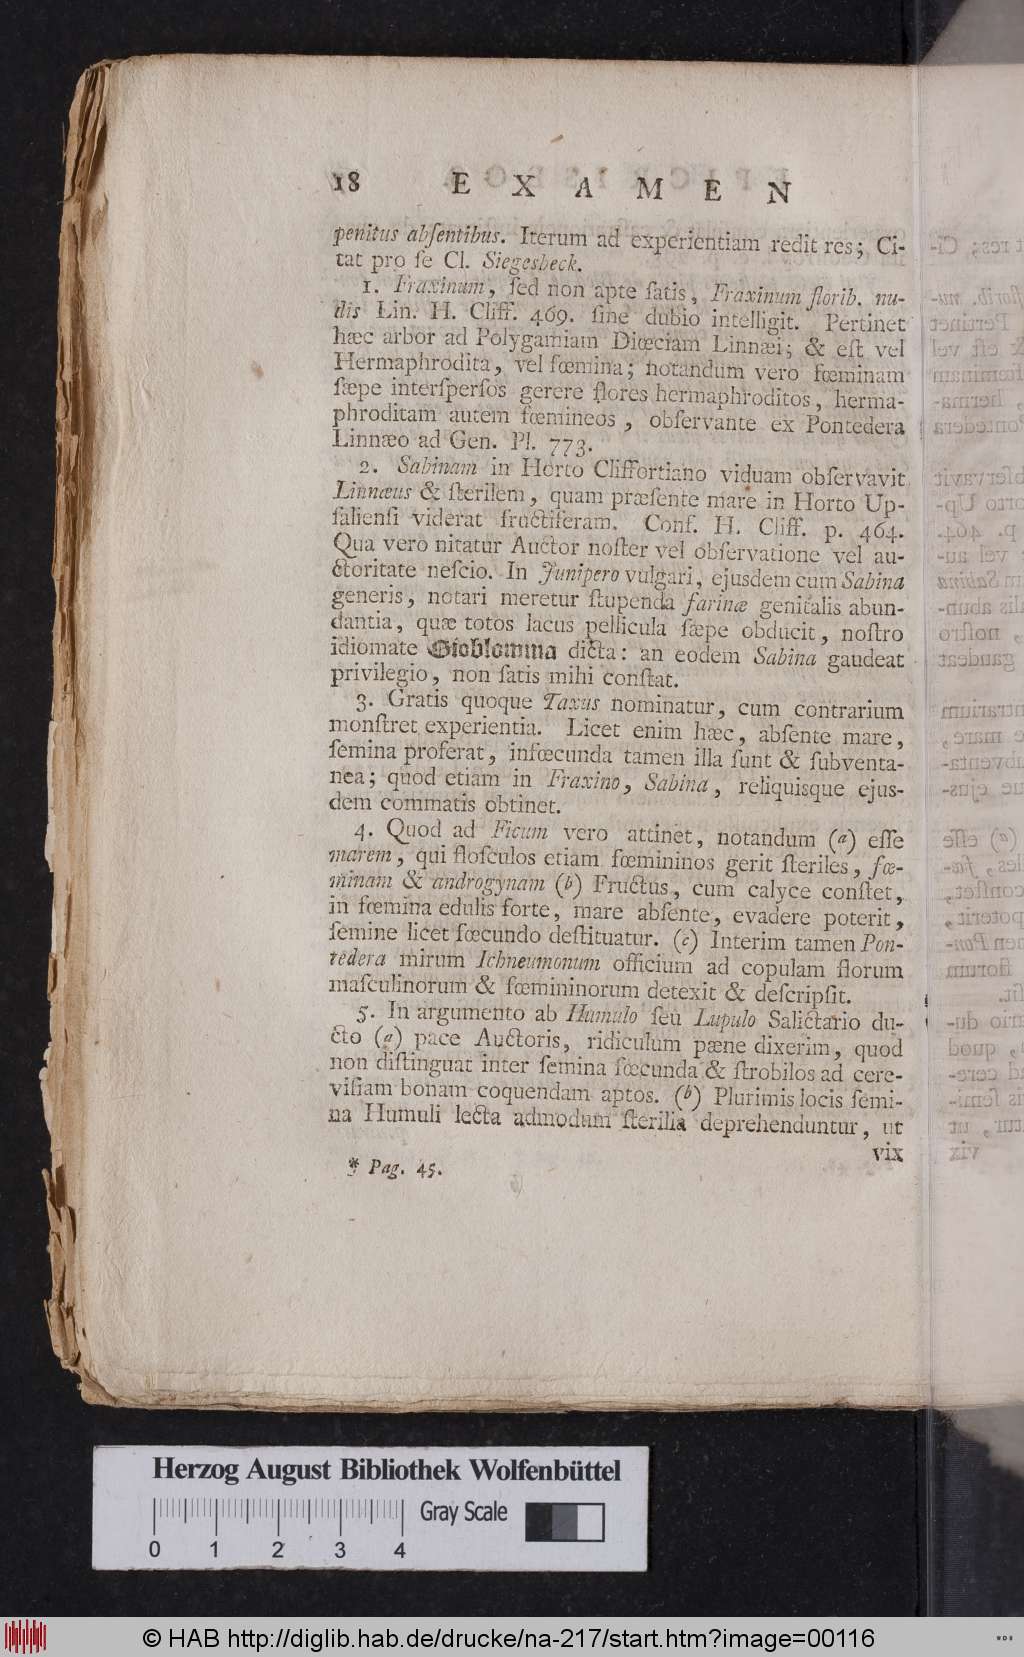 18 EXAMEN
penitus abſentibus. Iterum ad experientiam redit res; Ci-
tat pro ſe Cl. Siegesbeck.
1. Fraxinum, ſed non apte ſatis, Fraxinum florib. nu-
dis Lin. H. Cliff. 469. ſine dubio intelligit. Pertinet
hæc arbor ad Polygamiam Diœciam Linnæi; & eſt vel
Hermaphrodita, vel fœmina; notandum vero fœminam
ſæpe interſperſos gerere flores hermaphroditos, herma-
phroditam autem fœmineos, obſervante ex Pontedera
Linnæo ad Gen. Pl. 773.
2. Sabinam in Horto Cliffortiano viduam obſervavit
Linnæus & ſterilem, quam præſente mare in Horto Up-
ſalienſi viderat fructiferam. Conf. H. Cliff. p. 464.
Qua vero nitatur Auctor noſter vel obſervatione vel au-
ctoritate neſcio. In Junipero vulgari, ejusdem cum Sabina
generis, notari meretur ſtupenda farinæ genitalis abun-
dantia, quæ totos lacus pellicula ſæpe obducit, noſtro
idiomate Sioblomma dicta: an eodem Sabina gaudeat
privilegio, non ſatis mihi conſtat.
3. Gratis quoque Taxus nominatur, cum contrarium
monſtret experientia. Licet enim hæc, abſente mare,
ſemina proferat, infœcunda tamen illa ſunt & ſubventa-
nea; quod etiam in Fraxino, Sabina, reliquisque ejus-
dem commatis obtinet.
4. Quod ad Ficum vero attinet, notandum (a) eſſe
marem, qui floſculos etiam fœmininos gerit ſteriles, fœ-
minam & androgynam (b) Fructus, cum calyce conſtet,
in fœmina edulis forte, mare abſente, evadere poterit,
ſemine licet fœcundo deſtituatur. (c) Interim tamen Pon-
tedera mirum Ichneumonum officium ad copulam florum
maſculinorum & fœmininorum detexit & deſcripſit.
5. In argumento ab Humulo ſeu Lupulo Salictario du-
cto (a) pace Auctoris, ridiculum pæne dixerim, quod
non diſtinguat inter ſemina fœcunda & ſtrobilos ad cere-
viſiam bonam coquendam aptos. (b) Plurimis locis ſemi-
na Humuli lecta admodum ſterilia deprehenduntur, ut
vix
* Pag. 45.
Herzog August Bibliothek Wolfenbüttel
Gray Scale
0 1 2 3 4
© HAB http://diglib.hab.de/drucke/na-217/start.htm?image=00116